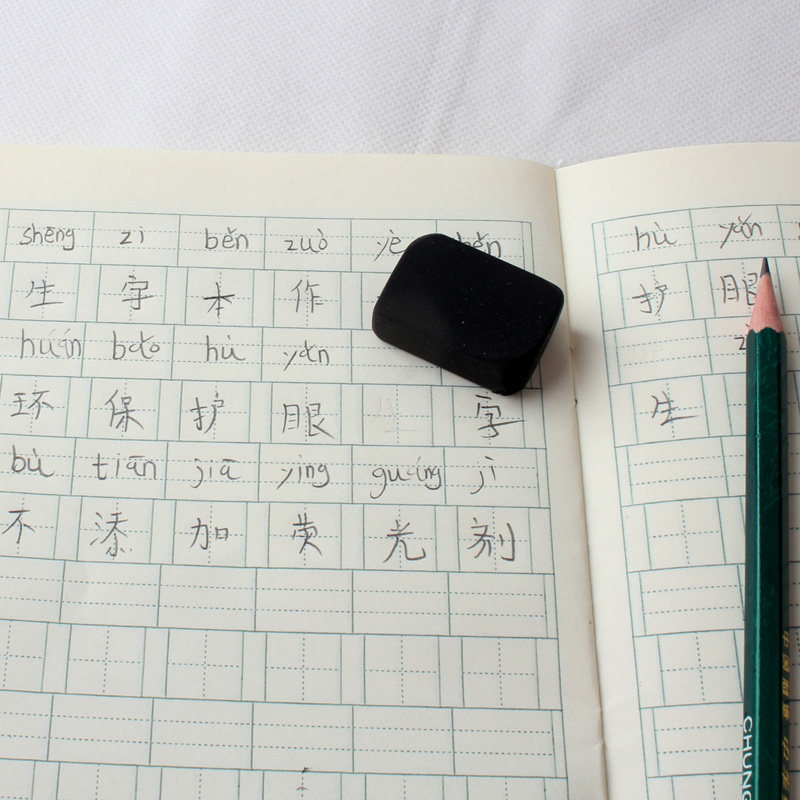 shēng zì běn zuò yè běn
生 字 本 作
huán bǎo hù yǎn
环 保 护 眼 字
bù tiān jiā yíng guāng jì
不 添 加 荧 光 剂
hù yǎn
护 眼
生
中国
CHUNG